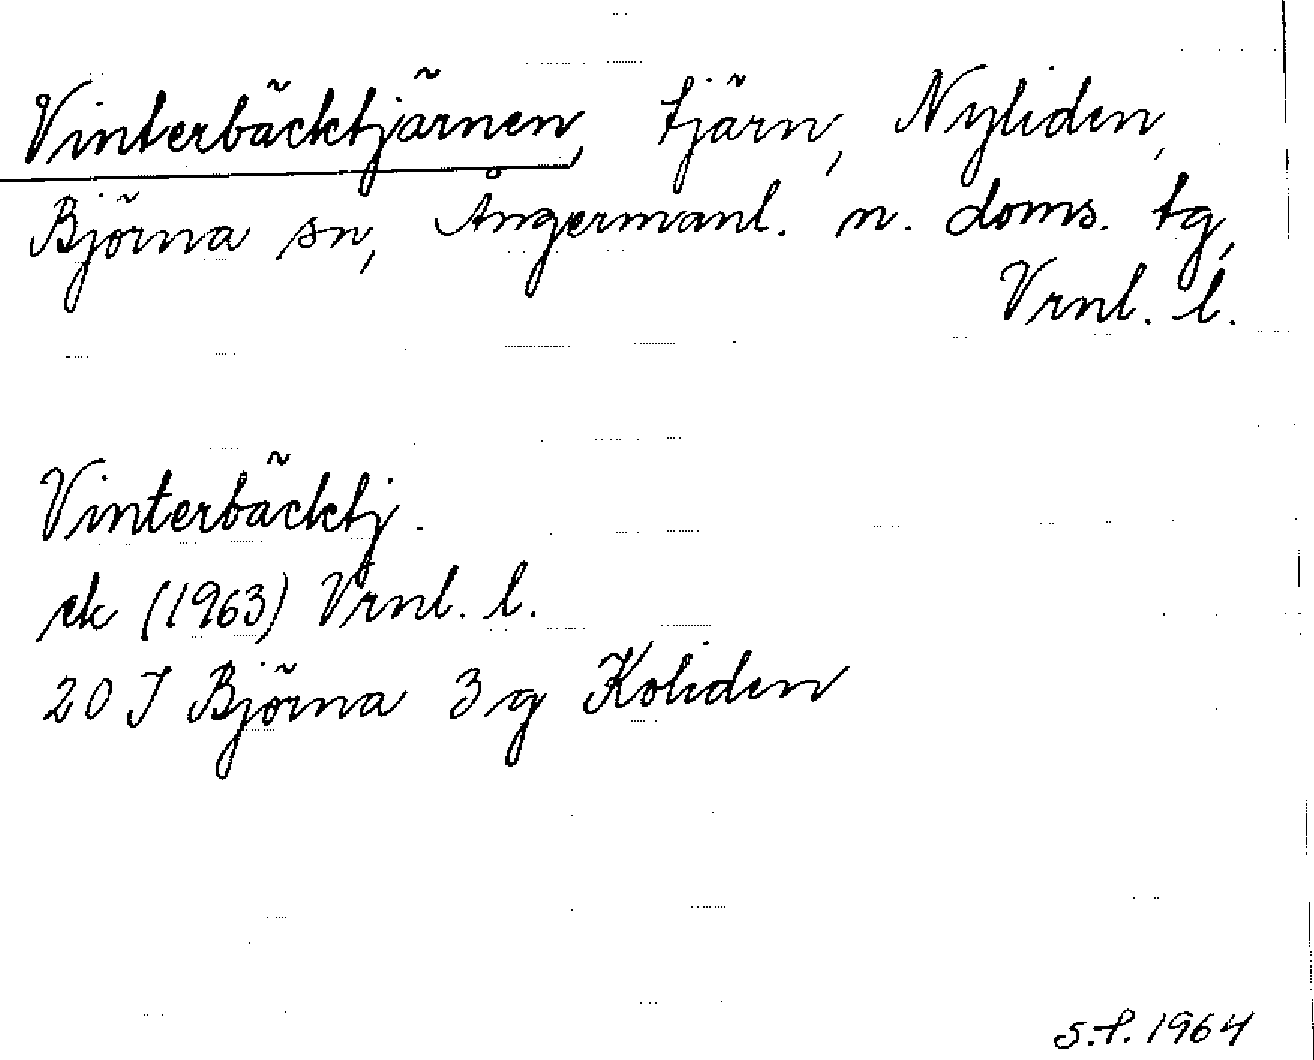 Vinterbäcktjärnen, tjärn, Nyliden,
Björna sn, Ångermanl. n. doms. tg,
Vrnl. l.
Vinterbäcktj.
ek (1963) Vrnl. l.
20 J Björna 3 g Koliden
S.F. 1964